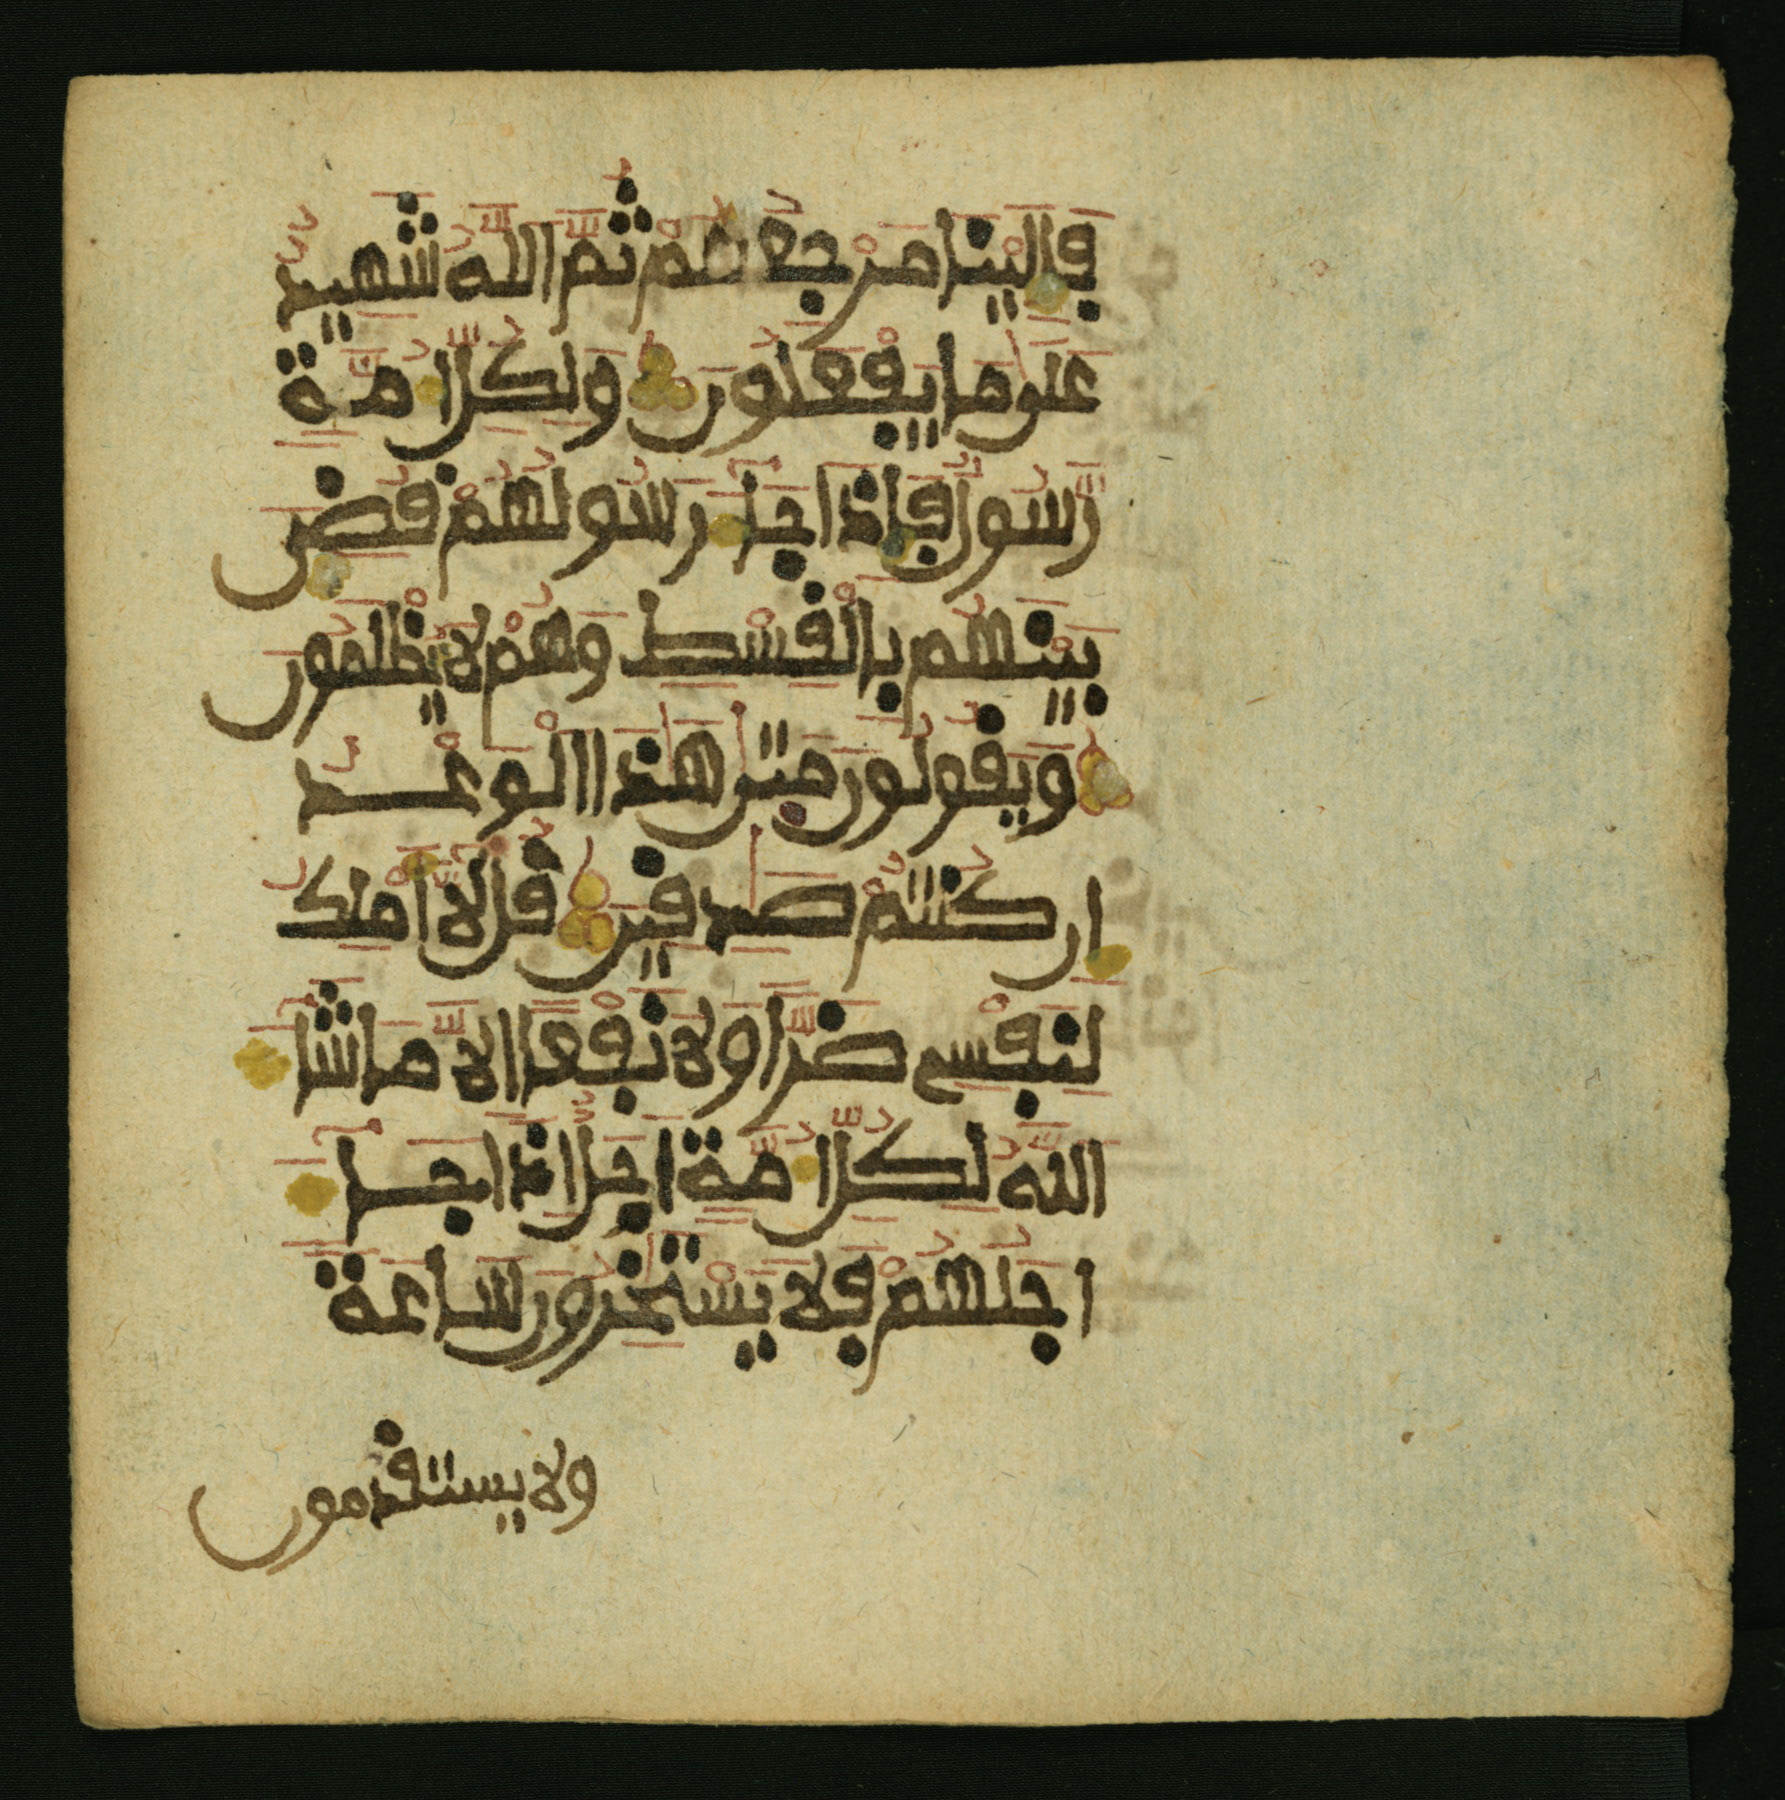 فالينا مرجعهم ثم الله شهيد
على ما يفعلون ولكل امة
رسول فاذا جا رسولهم قضى
بينهم بالقسط وهم لا يظلمون
ويقولون متى هذا الوعد
ان كنتم صدقين قل لا املك
لنفسى ضرا ولا نفعا الا ما شا
الله لكل امة اجل اذا جا
اجلهم فلا يستخرون ساعة
ولا يستقدمون